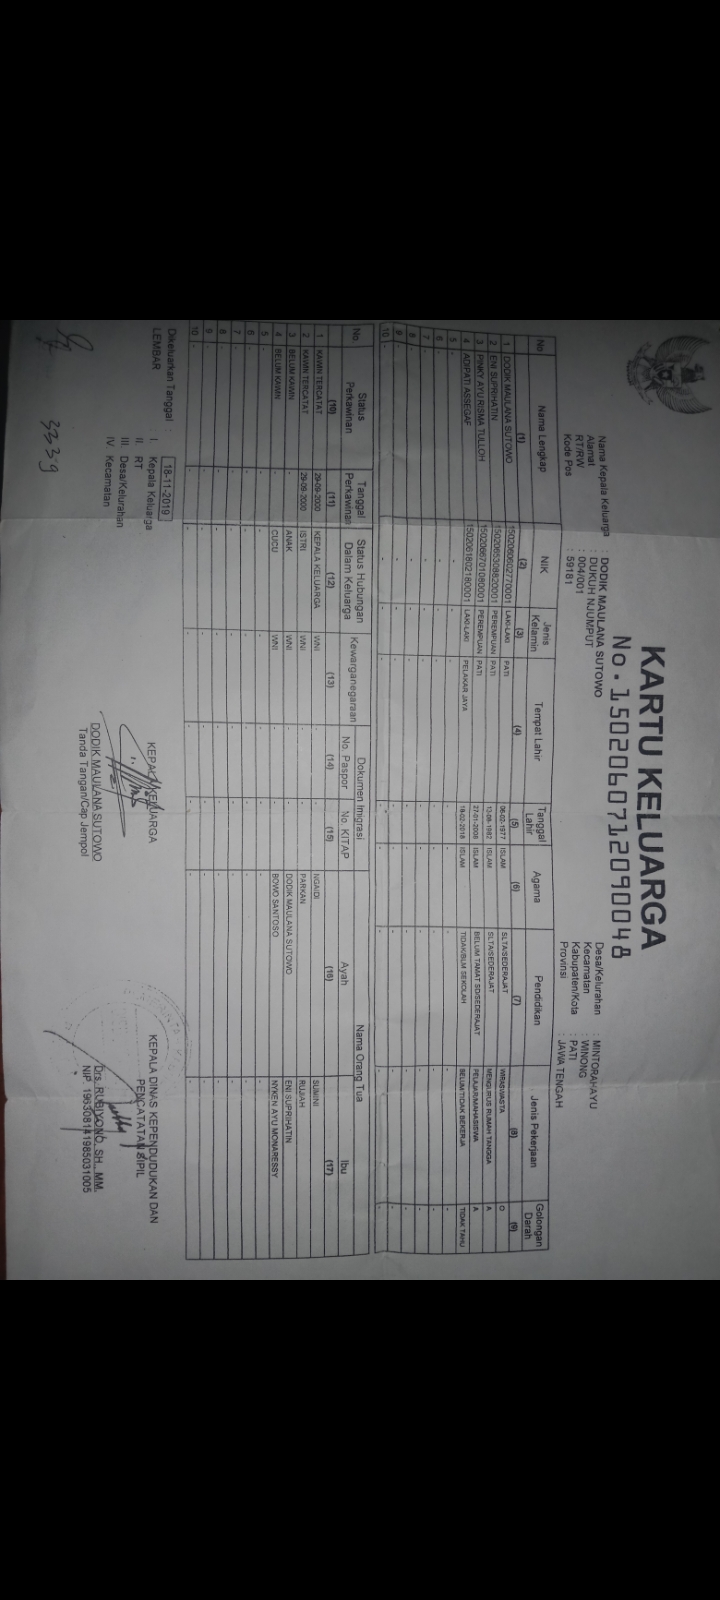 KARTU KELUARGA
No. 1502060712090048
Nama Kepala Keluarga : DODIK MAULANA SUTOWO
Alamat : DUKUH NJUMPUT
RT/RW : 004/001
Kode Pos : 59181
Desa/Kelurahan : MINTORAHAYU
Kecamatan : WINONG
Kabupaten/Kota : PATI
Provinsi : JAWA TENGAH
No Nama Lengkap NIK Jenis Kelamin Tempat Lahir Tanggal Lahir Agama Pendidikan Jenis Pekerjaan Golongan Darah
(1) (2) (3) (4) (5) (6) (7) (8) (9)
1 DODIK MAULANA SUTOWO 1502060602770001 LAKI-LAKI PATI 06-02-1977 ISLAM SLTA/SEDERAJAT WIRASWASTA O
2 ENI SUPRIHATIN 1502065308820001 PEREMPUAN PATI 13-08-1982 ISLAM SLTA/SEDERAJAT MENGURUS RUMAH TANGGA A
3 PINKY AYU RISMA TULLOH 1502066701080001 PEREMPUAN PATI 27-01-2008 ISLAM BELUM TAMAT SD/SEDERAJAT PELAJAR/MAHASISWA A
4 ADIPATI ASSEGAF 1502061802180001 LAKI-LAKI PELAKAR JAYA 18-02-2018 ISLAM TIDAK/BLM SEKOLAH BELUM/TIDAK BEKERJA TIDAK TAHU
5 - - - - - - - - -
6 - - - - - - - - -
7 - - - - - - - - -
8 - - - - - - - - -
9 - - - - - - - - -
10 - - - - - - - - -
No. Status Perkawinan Tanggal Perkawinan Status Hubungan Dalam Keluarga Kewarganegaraan Dokumen Imigrasi Nama Orang Tua
No. Paspor No. KITAP Ayah Ibu
(10) (11) (12) (13) (14) (15) (16) (17)
1 KAWIN TERCATAT 29-09-2000 KEPALA KELUARGA WNI - - NGAIDI SUMINI
2 KAWIN TERCATAT 29-09-2000 ISTRI WNI - - PARKAN RUJIAH
3 BELUM KAWIN - ANAK WNI - - DODIK MAULANA SUTOWO ENI SUPRIHATIN
4 BELUM KAWIN - CUCU WNI - - BOWO SANTOSO NYKEN AYU MONARESSY
5 - - - - - - - -
6 - - - - - - - -
7 - - - - - - - -
8 - - - - - - - -
9 - - - - - - - -
10 - - - - - - - -
Dikeluarkan Tanggal : 18-11-2019
LEMBAR : I. Kepala Keluarga
II. RT
III. Desa/Kelurahan
IV. Kecamatan
KEPALA KELUARGA
DODIK MAULANA SUTOWO
Tanda Tangan/Cap Jempol
KEPALA DINAS KEPENDUDUKAN DAN
PENCATATAN SIPIL
Drs. RUBIYONO, SH., MM.
NIP. 196308141985031005
3339